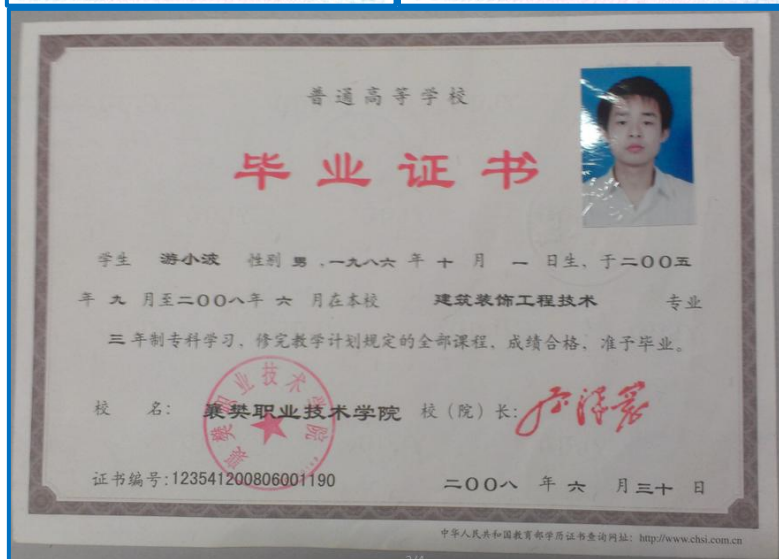 普通高等学校
毕业证书
学生 游小波 性别 男 ,一九八六 年 十 月 一 日生、于二00五
年 九 月至二00八年 六 月在本校 建筑装饰工程技术 专业
三 年制专科学习,修完教学计划规定的全部课程、成绩合格、准予毕业。
校 名: 襄樊职业技术学院 校(院)长:
襄樊职业技术学院
证书编号:123541200806001190 二00八 年 六 月三十 日
中华人民共和国教育部学历证书查询网址: http://www.chsi.com.cn